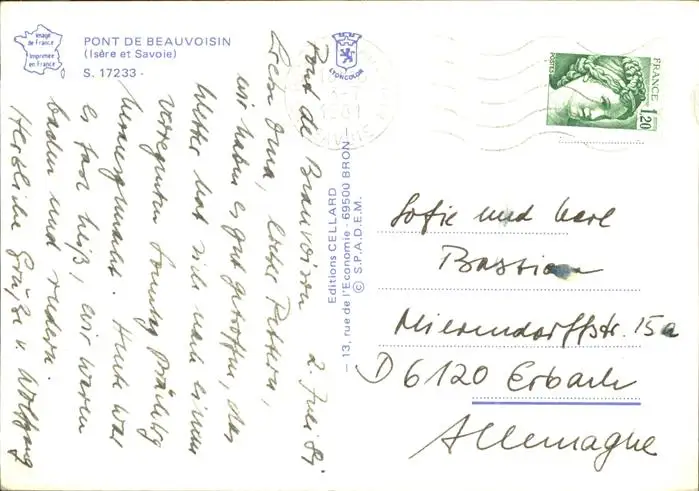 Image
de France
Imprimée
en France
PONT DE BEAUVOISIN
(Isère et Savoie)
S. 17233 -
LYONCOLOR
Editions CELLARD
- 13, rue de l'Economie - 69500 BRON -
© S.P.A.D.E.M.
POSTES
FRANCE
1,20
Pont de Beauvoisin 2. Juli 81
Liebe Oma, lieber
wir haben es gut getroffen, das
Wetter hat sich nach einem
verregneten Sonntag prächtig
herausgemacht. Heute war
es fast heiß, wir waren
baden und rudern.
Herzliche Grüße v. Wolfgang
Sofie und Karl
Bastian
Mierendorffstr. 15a
D 6120 Erbach
Allemagne